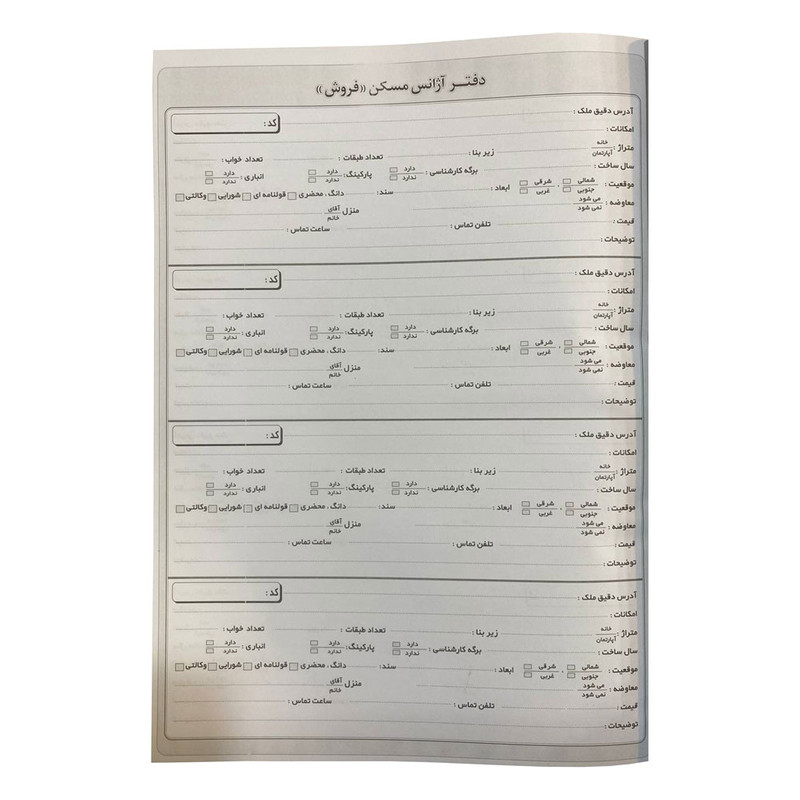 دفتر آژانس مسکن «فروش»
آدرس دقیق ملک : کد :
امکانات :
متراژ : خانه آپارتمان زیر بنا : تعداد طبقات : تعداد خواب :
سال ساخت : برگه کارشناسی : دارد ندارد پارکینگ : دارد ندارد انباری : دارد ندارد
موقعیت : شمالی جنوبی ، شرقی غربی ابعاد : سند : دانگ ، محضری قولنامه ای شورایی وکالتی
معاوضه : می شود نمی شود منزل آقای خانم
قیمت : تلفن تماس : ساعت تماس :
توضیحات :
آدرس دقیق ملک : کد :
امکانات :
متراژ : خانه آپارتمان زیر بنا : تعداد طبقات : تعداد خواب :
سال ساخت : برگه کارشناسی : دارد ندارد پارکینگ : دارد ندارد انباری : دارد ندارد
موقعیت : شمالی جنوبی ، شرقی غربی ابعاد : سند : دانگ ، محضری قولنامه ای شورایی وکالتی
معاوضه : می شود نمی شود منزل آقای خانم
قیمت : تلفن تماس : ساعت تماس :
توضیحات :
آدرس دقیق ملک : کد :
امکانات :
متراژ : خانه آپارتمان زیر بنا : تعداد طبقات : تعداد خواب :
سال ساخت : برگه کارشناسی : دارد ندارد پارکینگ : دارد ندارد انباری : دارد ندارد
موقعیت : شمالی جنوبی ، شرقی غربی ابعاد : سند : دانگ ، محضری قولنامه ای شورایی وکالتی
معاوضه : می شود نمی شود منزل آقای خانم
قیمت : تلفن تماس : ساعت تماس :
توضیحات :
آدرس دقیق ملک : کد :
امکانات :
متراژ : خانه آپارتمان زیر بنا : تعداد طبقات : تعداد خواب :
سال ساخت : برگه کارشناسی : دارد ندارد پارکینگ : دارد ندارد انباری : دارد ندارد
موقعیت : شمالی جنوبی ، شرقی غربی ابعاد : سند : دانگ ، محضری قولنامه ای شورایی وکالتی
معاوضه : می شود نمی شود منزل آقای خانم
قیمت : تلفن تماس : ساعت تماس :
توضیحات :